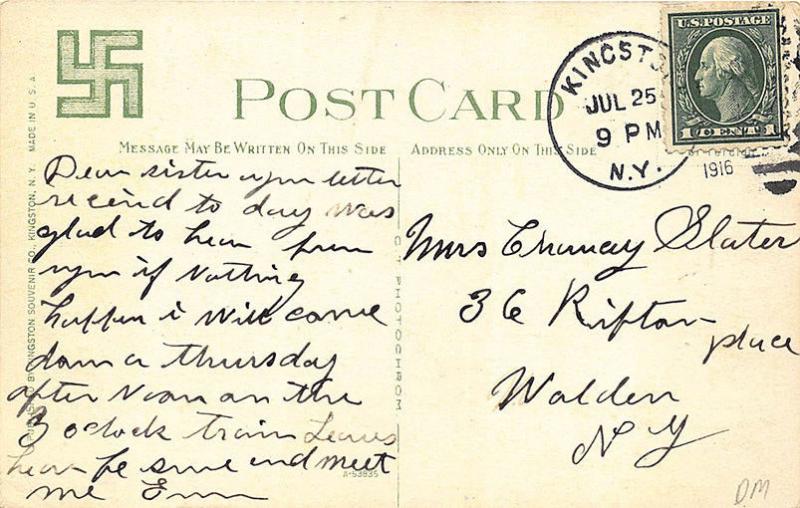 POST CARD
MESSAGE MAY BE WRITTEN ON THIS SIDE
ADDRESS ONLY ON THIS SIDE
KINGST
JUL 25
9 PM
N.Y.
1916
U.S. POSTAGE
1 CENT 1
MADE IN U.S.A.
KINGSTON SOUVENIR CO., KINGSTON, N.Y.
C T PHOTOCHROM
A-53835
Dear sister your letter
recived to day was
glad to hear from
you if Nothing
happen i will come
down a thursday
after Noon on the
3 oclock train Leaves
hear be sure and meet
me
Mrs Chancey Slater
36 Rifton
place
Walden
N Y
DM